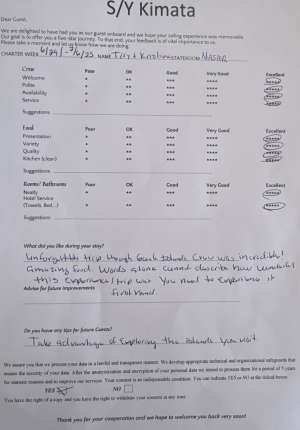 S/Y Kimata
Dear Guest,
We are delighted to have had you as our guest onboard and we hope your sailing experience was memorable.
Our goal is to offer you a five-star journey. To that end, your feedback is of vital importance to us.
Please take a moment and let us know how we are doing.
CHARTER WEEK 6/29/ - 7/6/25 NAME Tiff & Kristin STATEROOM Master
Crew Poor OK Good Very Good Excellent
Welcome * ** *** **** *****
Polite * ** *** **** *****
Availability * ** *** **** *****
Service * ** *** **** *****
Suggestions
Food Poor OK Good Very Good Excellent
Presentation * ** *** **** *****
Variety * ** *** **** *****
Quality * ** *** **** *****
Kitchen (clean) * ** *** **** *****
Suggestions
Rooms/ Bathrooms Poor OK Good Very Good Excellent
Neatly * ** *** **** *****
Hotel Service
(Towels, Bed...) * ** *** **** *****
Suggestions
What did you like during your stay?
Unforgettable trip through Greek Islands. Crew was incredible!
Amazing food. Words alone cannot describe how wonderful
this experience/trip was. You need to experience it
Advise for future improvements first hand.
Do you have any tips for future Guests?
Take advantage of exploring the islands you visit.
We assure you that we process your data in a lawful and transparent manner. We develop appropriate technical and organizational safeguards that
ensure the security of your data. After the anonymization and encryption of your personal data we intend to process them for a period of 5 years
for statistic reasons and to improve our services. Your consent is an indispensable condition. You can indicate YES or NO at the ticked boxes.
YES NO
You have the right of access and you have the right to withdraw your consent at any time.
Thank you for your cooperation and we hope to welcome you back very soon!